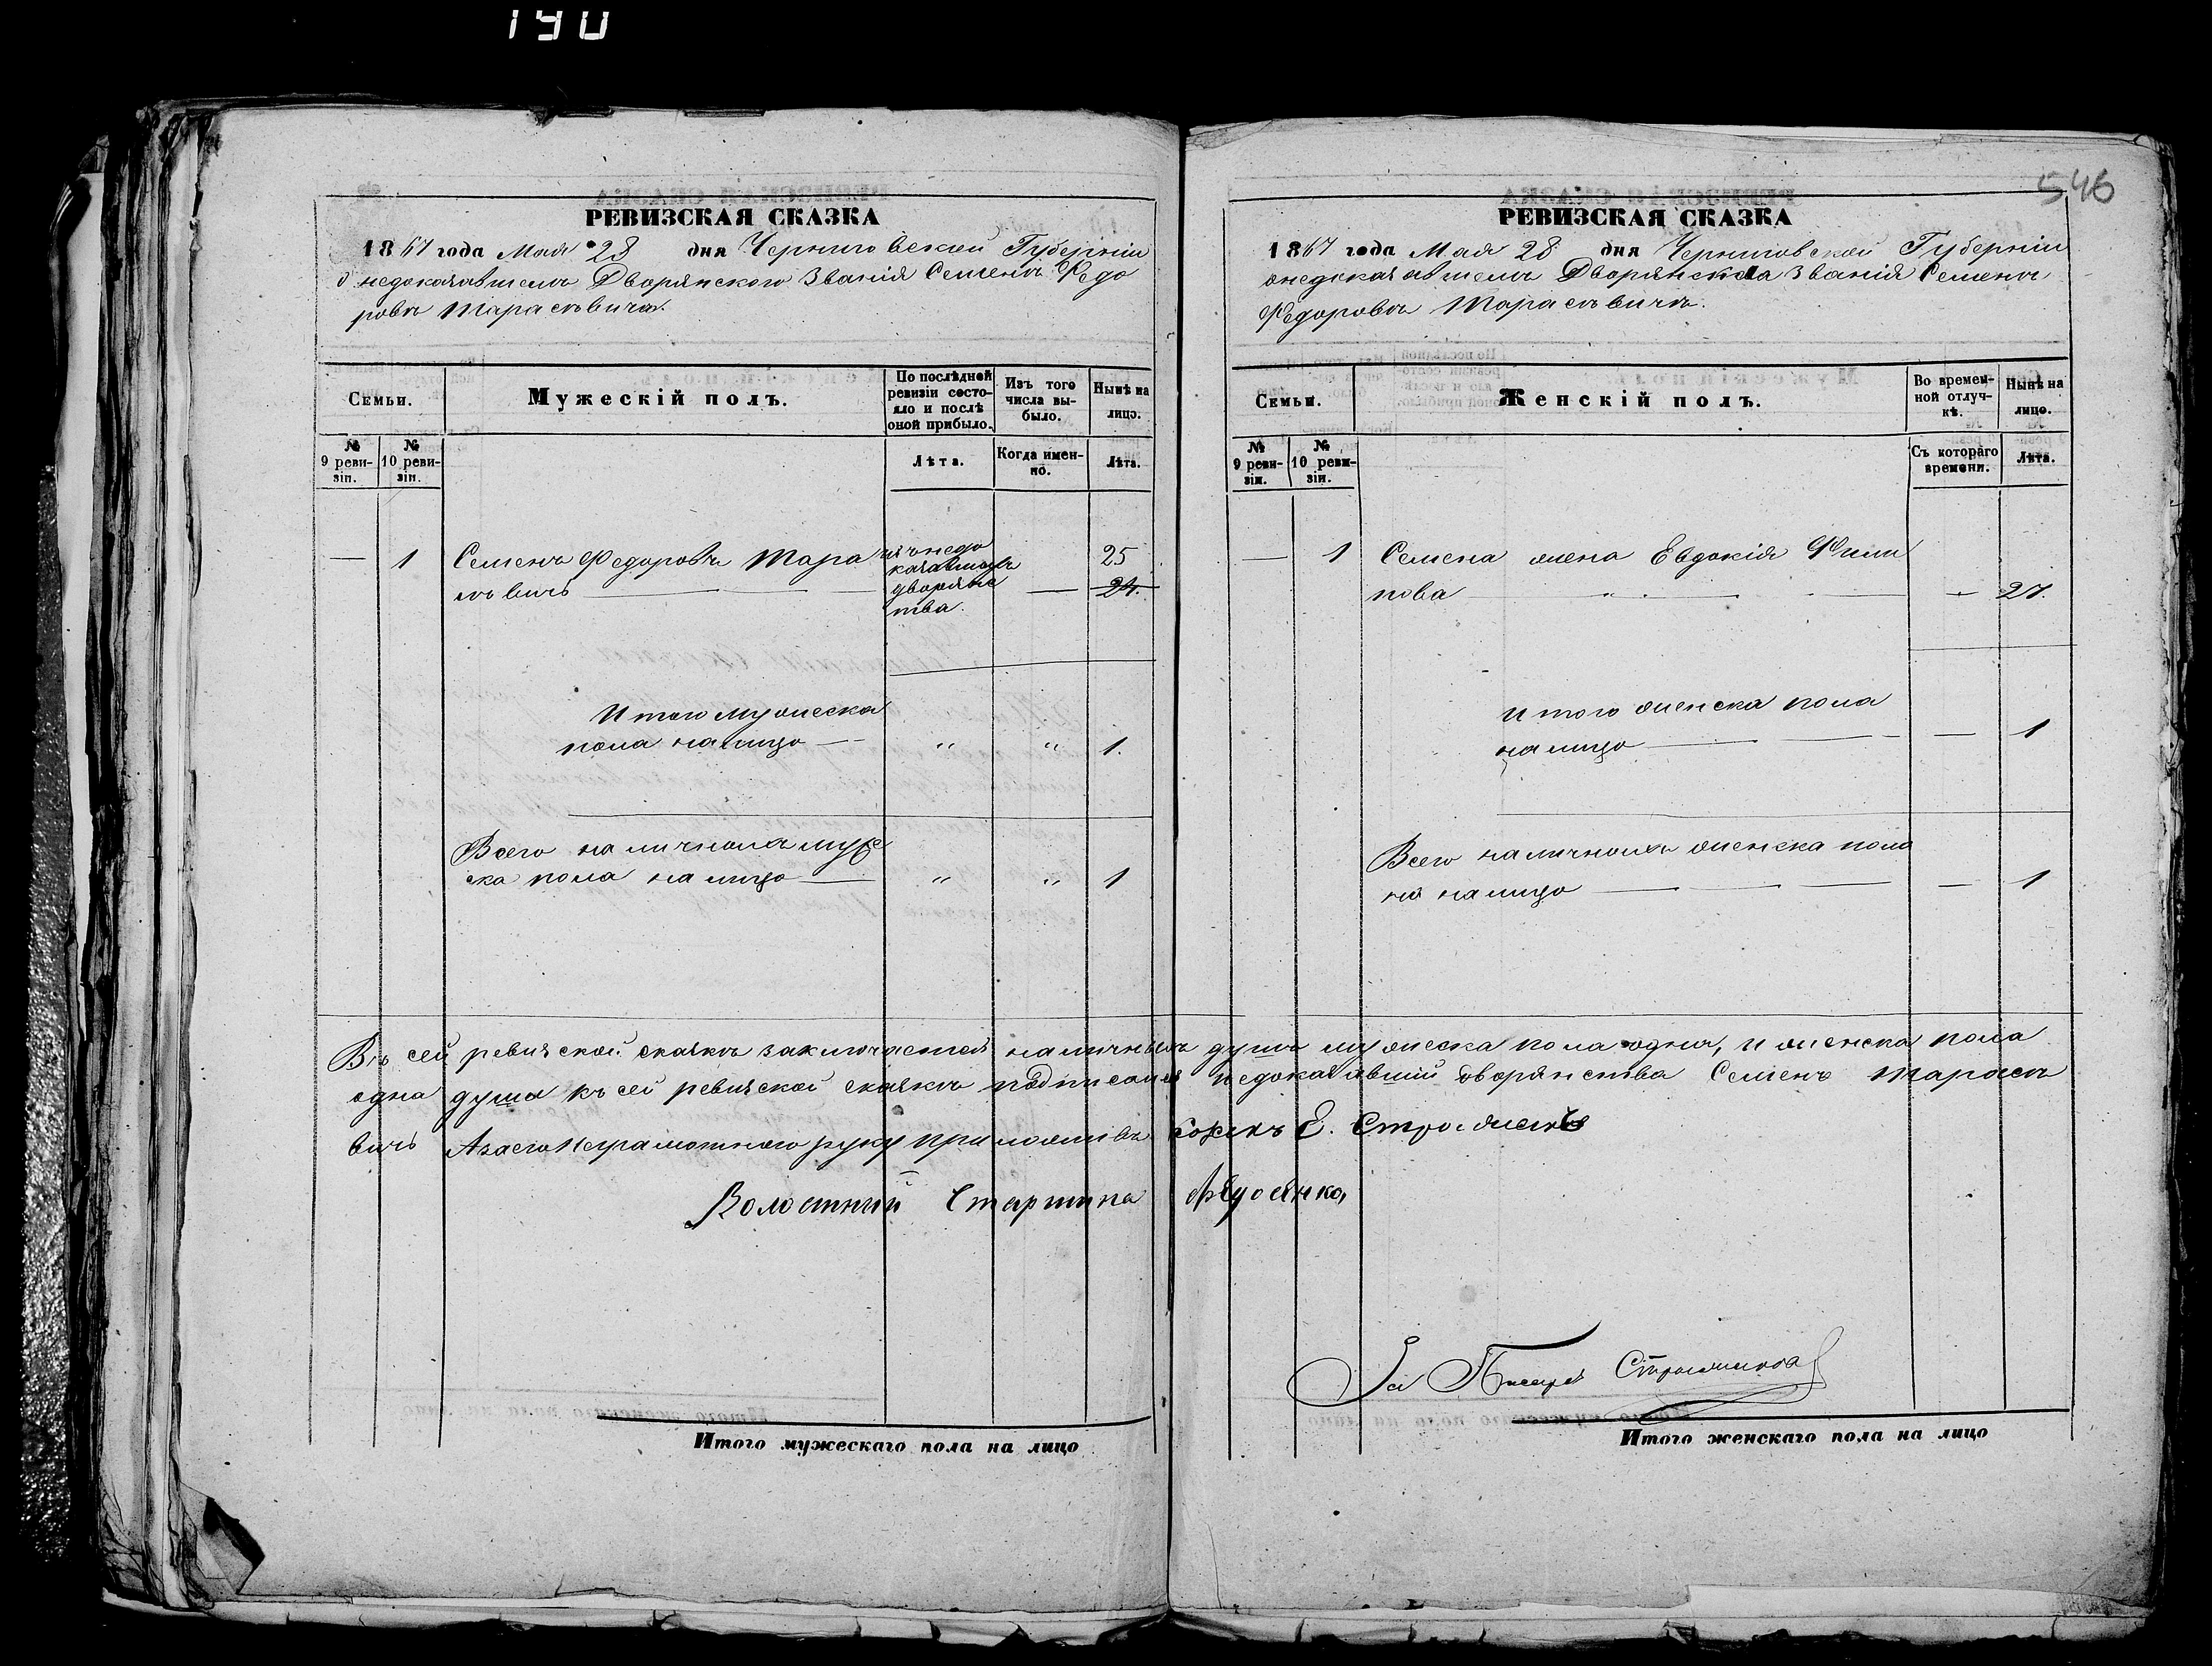 190
546
РЕВИЗСКАЯ СКАЗКА
1867 года Мая 28 дня Черниговской Губерніи
о недоказавшемъ Дворянского Званія Семенъ Федо
ровъ Тарасѣвичъ.
Семьи.
Мужескій полъ.
По послѣдней ревизіи состояло и послѣ оной прибыло.
Изъ того числа выбыло.
Нынѣ на лицо.
№ 9 ревизіи.
№ 10 ревизіи.
Лѣта.
Когда именно.
Лѣта.
— 1 Семенъ Федоровъ Тара изъ недо 25
сѣвичъ — казавшихъ дворянства. — 24.
Итого мужеска
пола налицо — " " 1.
Всего наличнихъ муже
ска пола на лицо — " " 1
РЕВИЗСКАЯ СКАЗКА
1867 года Мая 28 дня Черниговской Губерніи
онедоказавшемъ Дворянскаа Званія Семенъ
Федоровъ Тарасѣвичъ.
Семьи.
Женскій полъ.
Во временной отлучкѣ.
Нынѣ на лицо.
№ 9 ревизіи.
№ 10 ревизіи.
Съ котораго времени.
Лѣта.
— 1 Семена жена Евдокія Фили
пова — — 27.
Итого женска пола
налицо — — 1
Всего наличнихъ женска пола
на налицо — — 1
Въ сей ревизской сказкѣ заключается наличныхъ душъ мужеска пола одна, и женска пола
одна душа къ сей ревизской сказкѣ подписался недоказавшій дворянства Семенъ Тарасѣ
вичъ Азаего Неграмотного руку приложивъ
Волостний Старшина
За Писаря
Итого мужескаго пола на лицо
Итого женскаго пола на лицо